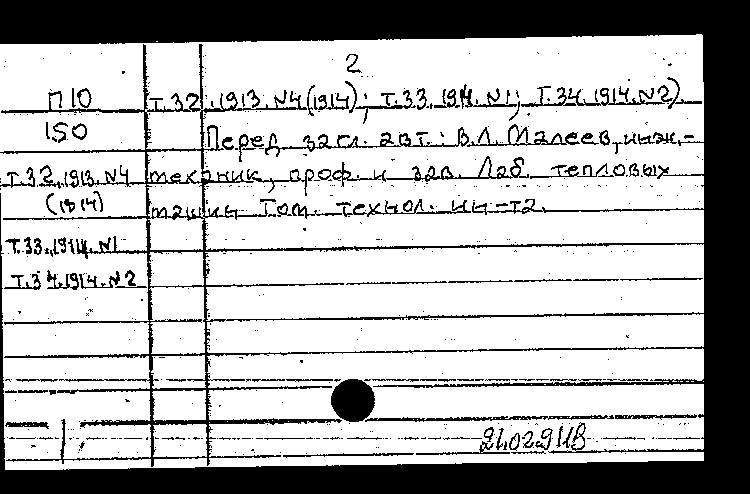 2
П10 Т.32.1913.N4(1914); Т.33.1914.N1; Т.34.1914.N2).
150 Перед загл. авт.: В.Л. Малеев, инж.-
Т.32.1913.N4 механик, проф. и зав. Лаб. тепловых
(1914) машин Том. технол. ин-та.
Т.33.1914.N1
Т.34.1914.N2